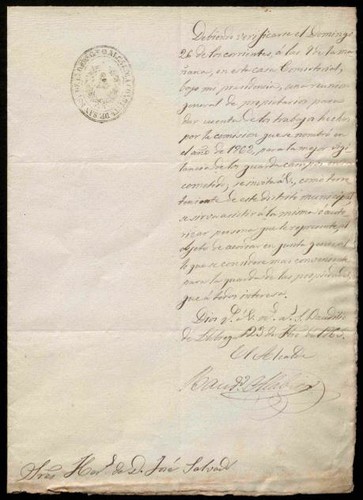 Debiendo verificarse el Domingo
26 de los corrientes, á las 9 de la ma-
ñana, en esta casa Consistorial,
bajo mi presidencia, una reunion
general de propietarios para
dar cuenta de los trabajos hechos
por la comision que se nombró en
el año de 1862, para la mejor vigi-
lancia de los guardas
se invita á V. como terra-
teniente de este distrito municipal
se sirva asistir á la misma ó auto-
rizar persona que le represente, al
objeto de acordar en junta general
lo que se considere mas conveniente
para la guarda de las propiedades
que á todos interesa.
Dios gue. á V. ms. as. S. Baudilio
de Llobregt. 23 de de 1865
El Alcalde
Sres. Hers. de D. José Salvadó